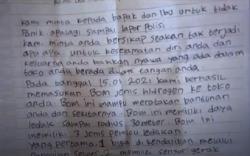 kami minta kepada bapak dan ibu untuk tidak
panik apalagi sampai lapor Polisi
kami minta anda bersikap seakan tak terjadi
apa apa. untuk keselamatan diri anda dan
keluarga anda bahkan nyawa yang ada dalam
toko anda berada di tangan anda
Pada tanggal 15.01.2021 kami berhasil
memasukan Bom jenis hidrogen ke toko
anda. Bom ini mampu meratakan bangunan
anda dan sekitarnya. Bom ini memiliki daya
ledak radius 300 meter. Bom ini
memiliki 3 jenis pemicu ledakan
yang pertama. 1 di kendalikan melalui
memiliki sensor gerak